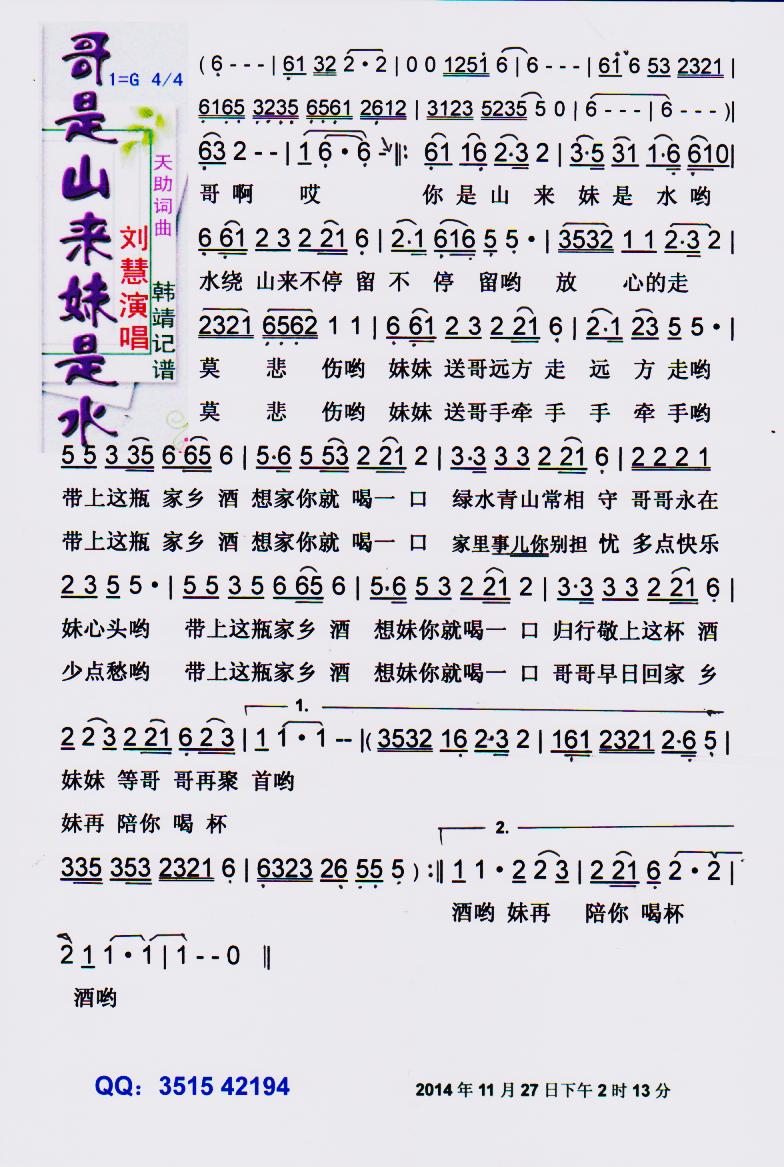 哥是山来妹是水
1=G 4/4
天助词曲
刘慧演唱
韩靖记谱
(6---|61 32 2·2|0 0 1251 6|6---|61 6 53 2321|
6165 3235 6561 2612|3123 5235 5 0|6---|6---)||
63 2--|1 6·6-||: 61 16 2·3 2|3·5 31 1·6 610|
哥啊 哎 你是山来妹是水哟
6 61 2 3 2 221 6|2·1 616 5 5·|3532 1 1 2·3 2|
水绕 山来不停 留 不 停 留哟 放 心的走
2321 6562 1 1|6 61 2 3 2 221 6|2·1 23 5 5·|
莫 悲 伤哟 妹妹 送哥远方 走 远 方 走哟
莫 悲 伤哟 妹妹 送哥手牵 手 手 牵 手哟
5 5 3 35 6 65 6|5·6 5 53 2 221 2|3·3 3 3 2 221 6|2 2 2 1
带上这瓶 家乡 酒 想家你就 喝一 口 绿水青山常相 守 哥哥永在
带上这瓶 家乡 酒 想家你就 喝一 口 家里事儿你别担 忧 多点快乐
2 3 5 5·|5 5 3 5 6 65 6|5·6 5 3 2 221 2|3·3 3 3 2 221 6|
妹心头哟 带上这瓶家乡 酒 想妹你就喝一 口 归行敬上这杯 酒
少点愁哟 带上这瓶家乡 酒 想妹你就喝一 口 哥哥早日回家 乡
1.
2 2 3 2 21 6 2 3|1 1·1--|(3532 16 2·3 2|161 2321 2·6 5|
妹妹 等哥 哥再聚 首哟
妹再 陪你 喝 杯
2.
335 353 2321 6|6323 26 55 5):|| 1 1·2 2 3|2 21 6 2·2|
酒哟 妹再 陪你 喝杯
2 1 1·1|1--0 ||
酒哟
QQ：3515 42194
2014 年 11 月 27 日下午 2 时 13 分